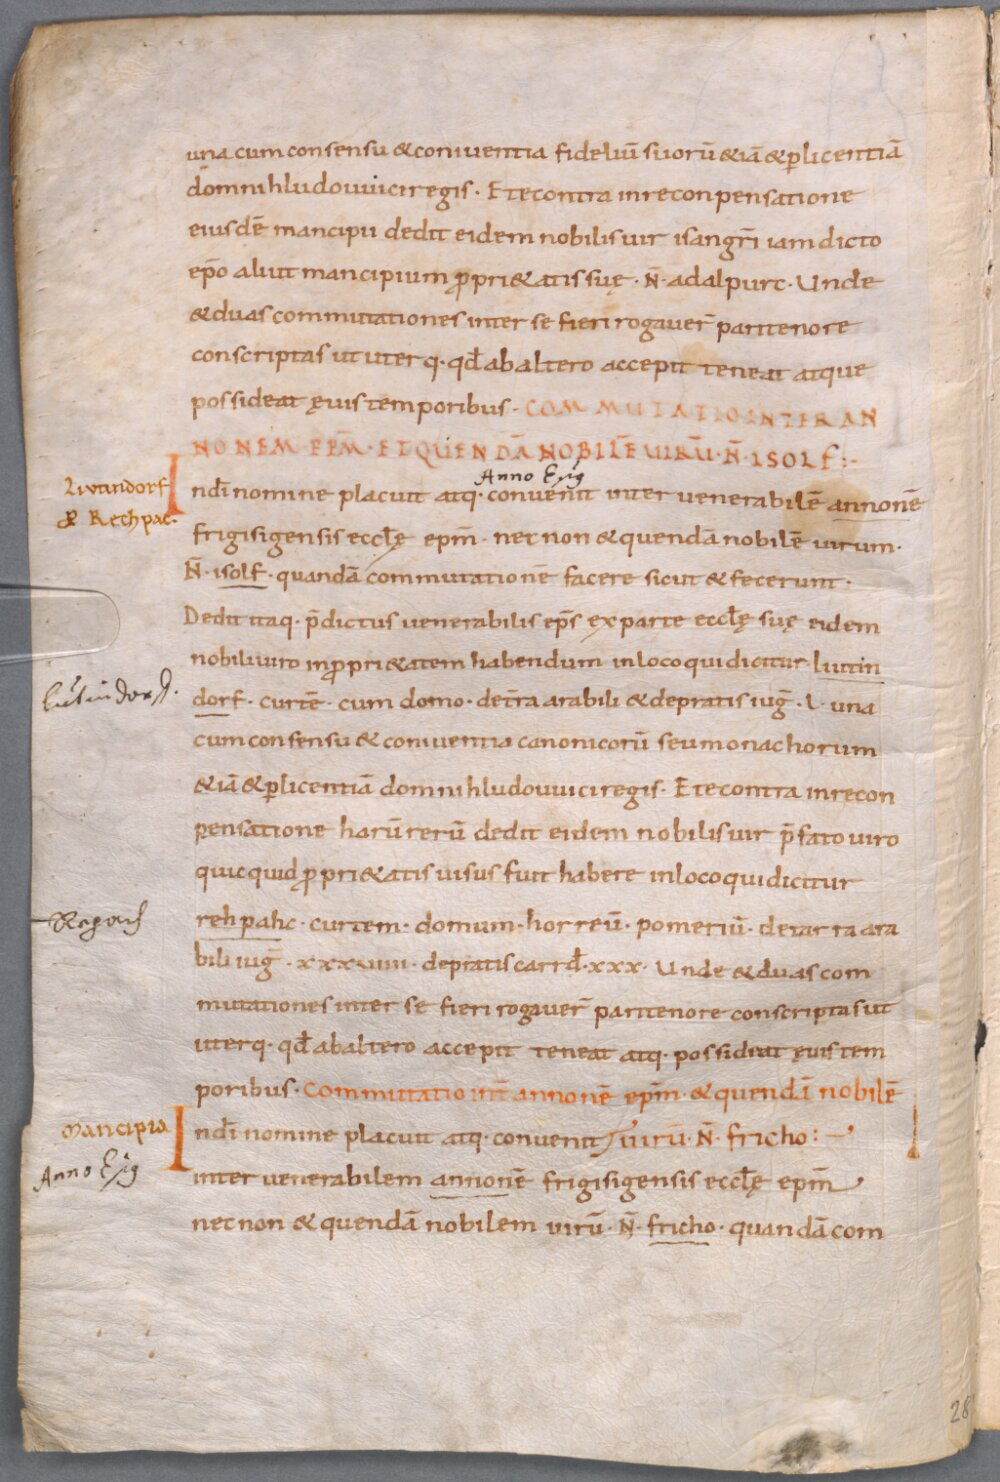 una cum consensu & coniventia fideliũ suorũ &iã & ꝑ licentiã
domni hludouuici regis · Et econtra in reconpensatione
eiusdẽ mancipii dedit eidem nobilis uir isangrĩ iam dicto
ep̃o aliut mancipium ꝓpri&atis suę · N̄ · adalpurc · Unde
& duas commutationes inter se fieri rogauer̃ pari tenore
conscriptas ut uterq · qđ ab altero accepit teneat atque
possideat ęuis temporibus · COMMUTATIO INTER AN
NONEM EP̃M · ET QUENDÃ NOBILẼ UIRŨ · N̄ · ISOLF :-
Anno Epĩg
Liutindorf
& Rechpac.
Indĩ nomine placuit atq · conuenit inter uenerabilẽ annonẽ
frigisigensis eccłę ep̃m · nec non & quendã nobilẽ uirum ·
N̄ · isolf · quandã commutationẽ facere sicut & fecerunt ·
Dedit itaq · p̃dictus uenerabilis ep̃s ex parte eccłę suę eidem
nobili uiro in ꝓpri&atem habendum in loco qui dicitur liutin
Liutindorf.
dorf · curtẽ · cum domo · de tr̃a arabili & de pratis iug̃ · L · una
cum consensu & coniventia canonicorũ seu monachorum
&iã & ꝑ licentiã domni hludouuici regis · Et econtra in recon
pensatione harũ rerũ dedit eidem nobilis uir p̃fato uiro
quicquid ꝓpri&atis uisus fuit habere in loco qui dicitur
rehpahc · curtem · domum · horreũ · pomeriũ · de tarra ara
bili iug̃ · xxxuiiii · de pratis carrđ · xxx · Unde & duas com
mutationes inter se fieri rogauer̃ pari tenore conscriptas ut
uterq · qđ ab altero accepit teneat atq · possideat ęuis tem
poribus · Commutatio int̃ annonẽ ep̃m · & quendã nobilẽ
Mancipia
Anno Epĩg
Indĩ nomine placuit atq · conuenit uirũ · N̄ · fricho : ~
inter uenerabilem annonẽ frigisigensis eccłę ep̃m
nec non & quendã nobilem uirũ · N̄ · fricho · quandã com
28